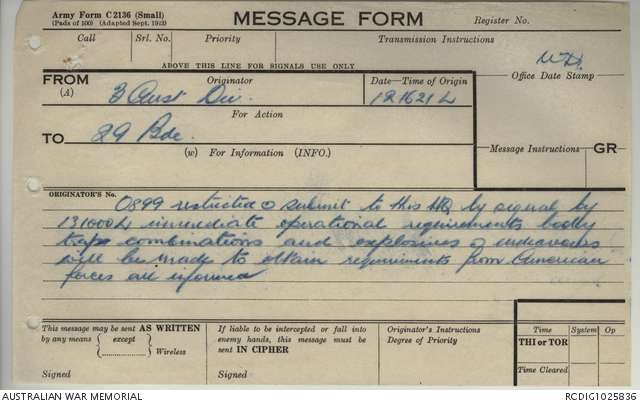 Army Form C 2136 (Small)
(Pads of 100) (Adapted Sept. 1943)
MESSAGE FORM
Register No.
Call Srl. No. Priority Transmission Instructions
ABOVE THIS LINE FOR SIGNALS USE ONLY
W.D.
Office Date Stamp
FROM
(A)
Originator
3 Aust Div.
Date—Time of Origin
121621 L
For Action
TO
29 Bde.
(w) For Information (INFO.)
Message Instructions
GR
ORIGINATOR'S No.
O899 restricted submit to this HQ by signal by
131000L immediate operational requirements booby
trap combinations and explosives endeavours
will be made to obtain requirements from American
forces all informed
This message may be sent AS WRITTEN
by any means except
Wireless
Signed
If liable to be intercepted or fall into
enemy hands, this message must be
sent IN CIPHER
Signed
Originator's Instructions
Degree of Priority
Time System Op
THI or TOR
Time Cleared
AUSTRALIAN WAR MEMORIAL
RCDIG1025836